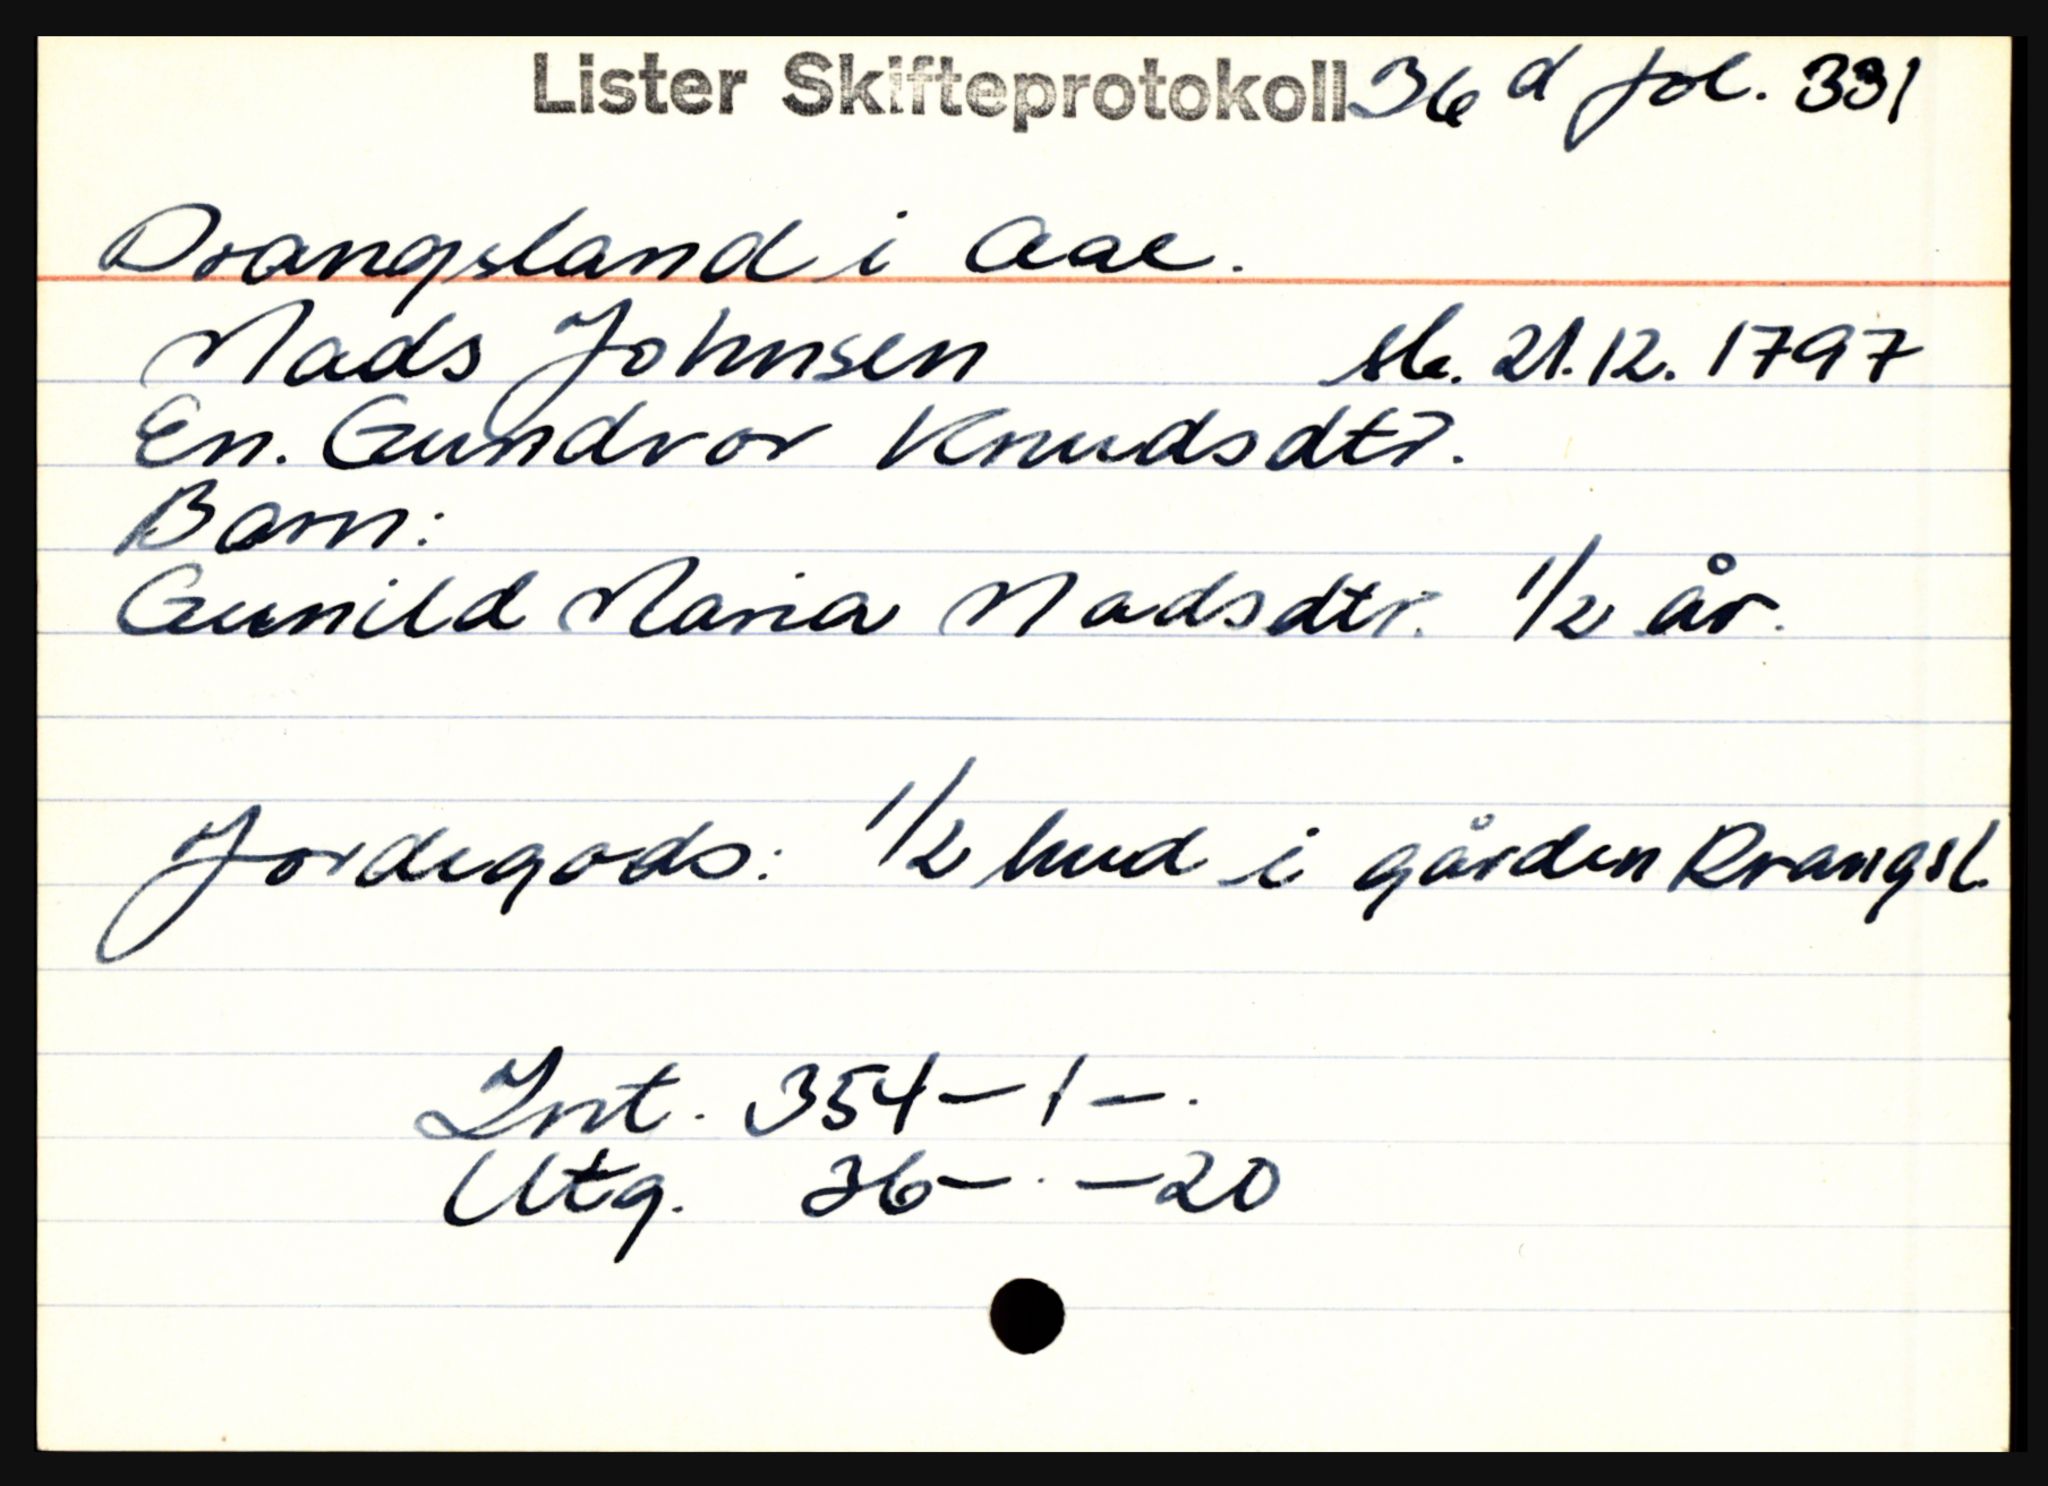 Lister Skifteprotokoll 36 d fol. 331
Drangsland i Aae.
Mads Johnsen sk. 21.12.1797
En. Gundvor Knudsdtr.
Barn:
Gunild Maria Madsdtr. 1/2 år.
Jordegods: 1/2 hud i gården Drangsl.
Int. 354 – 1 – .
Utg. 36 – . – 20